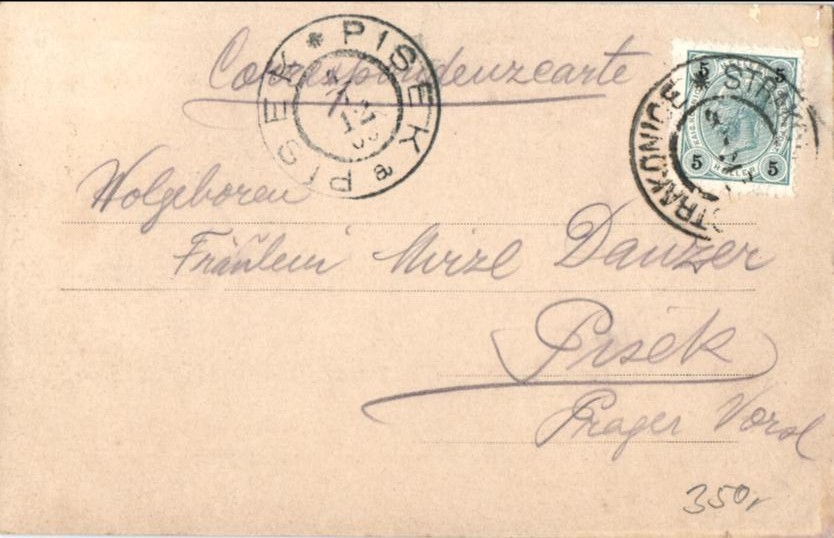 Correspondenzcarte
PISEK * PISEK a
5 5
STRAKONICE * STRAK
5 HELLER 5
Wolgeboren
Fräulein Mirzl Danzer
Pisek
Prager Vorst
350,